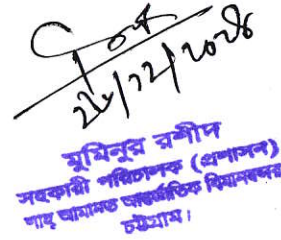 মুমিনুর রশীদ
সহকারী পরিচালক (প্রশাসন)
শাহ্ আমানত আন্তর্জাতিক বিমানবন্দর
চট্টগ্রাম।